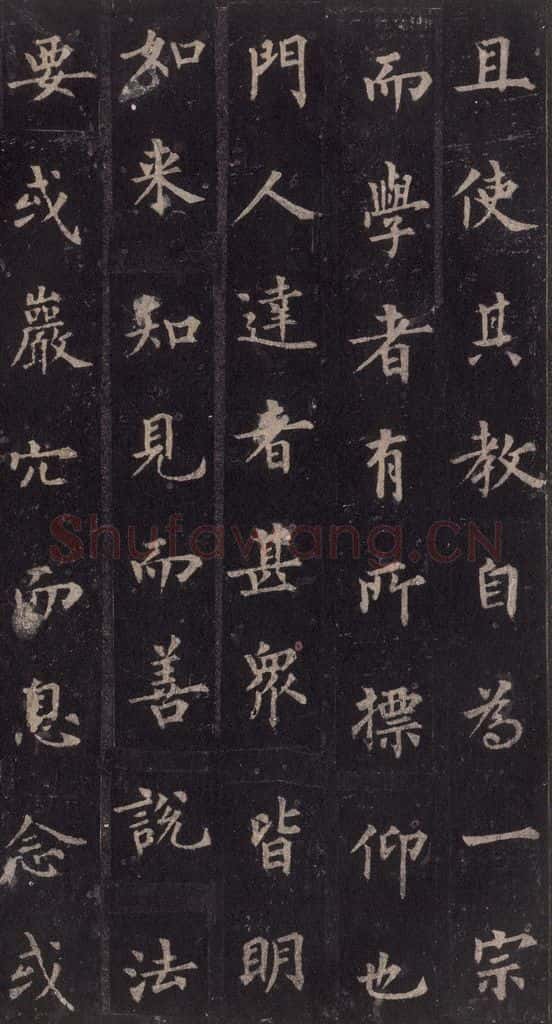 且使其教自為一宗
而學者有所標仰也
門人達者甚眾皆明
如来知見而善說法
要或巖穴而息念或
Shufawang.CN